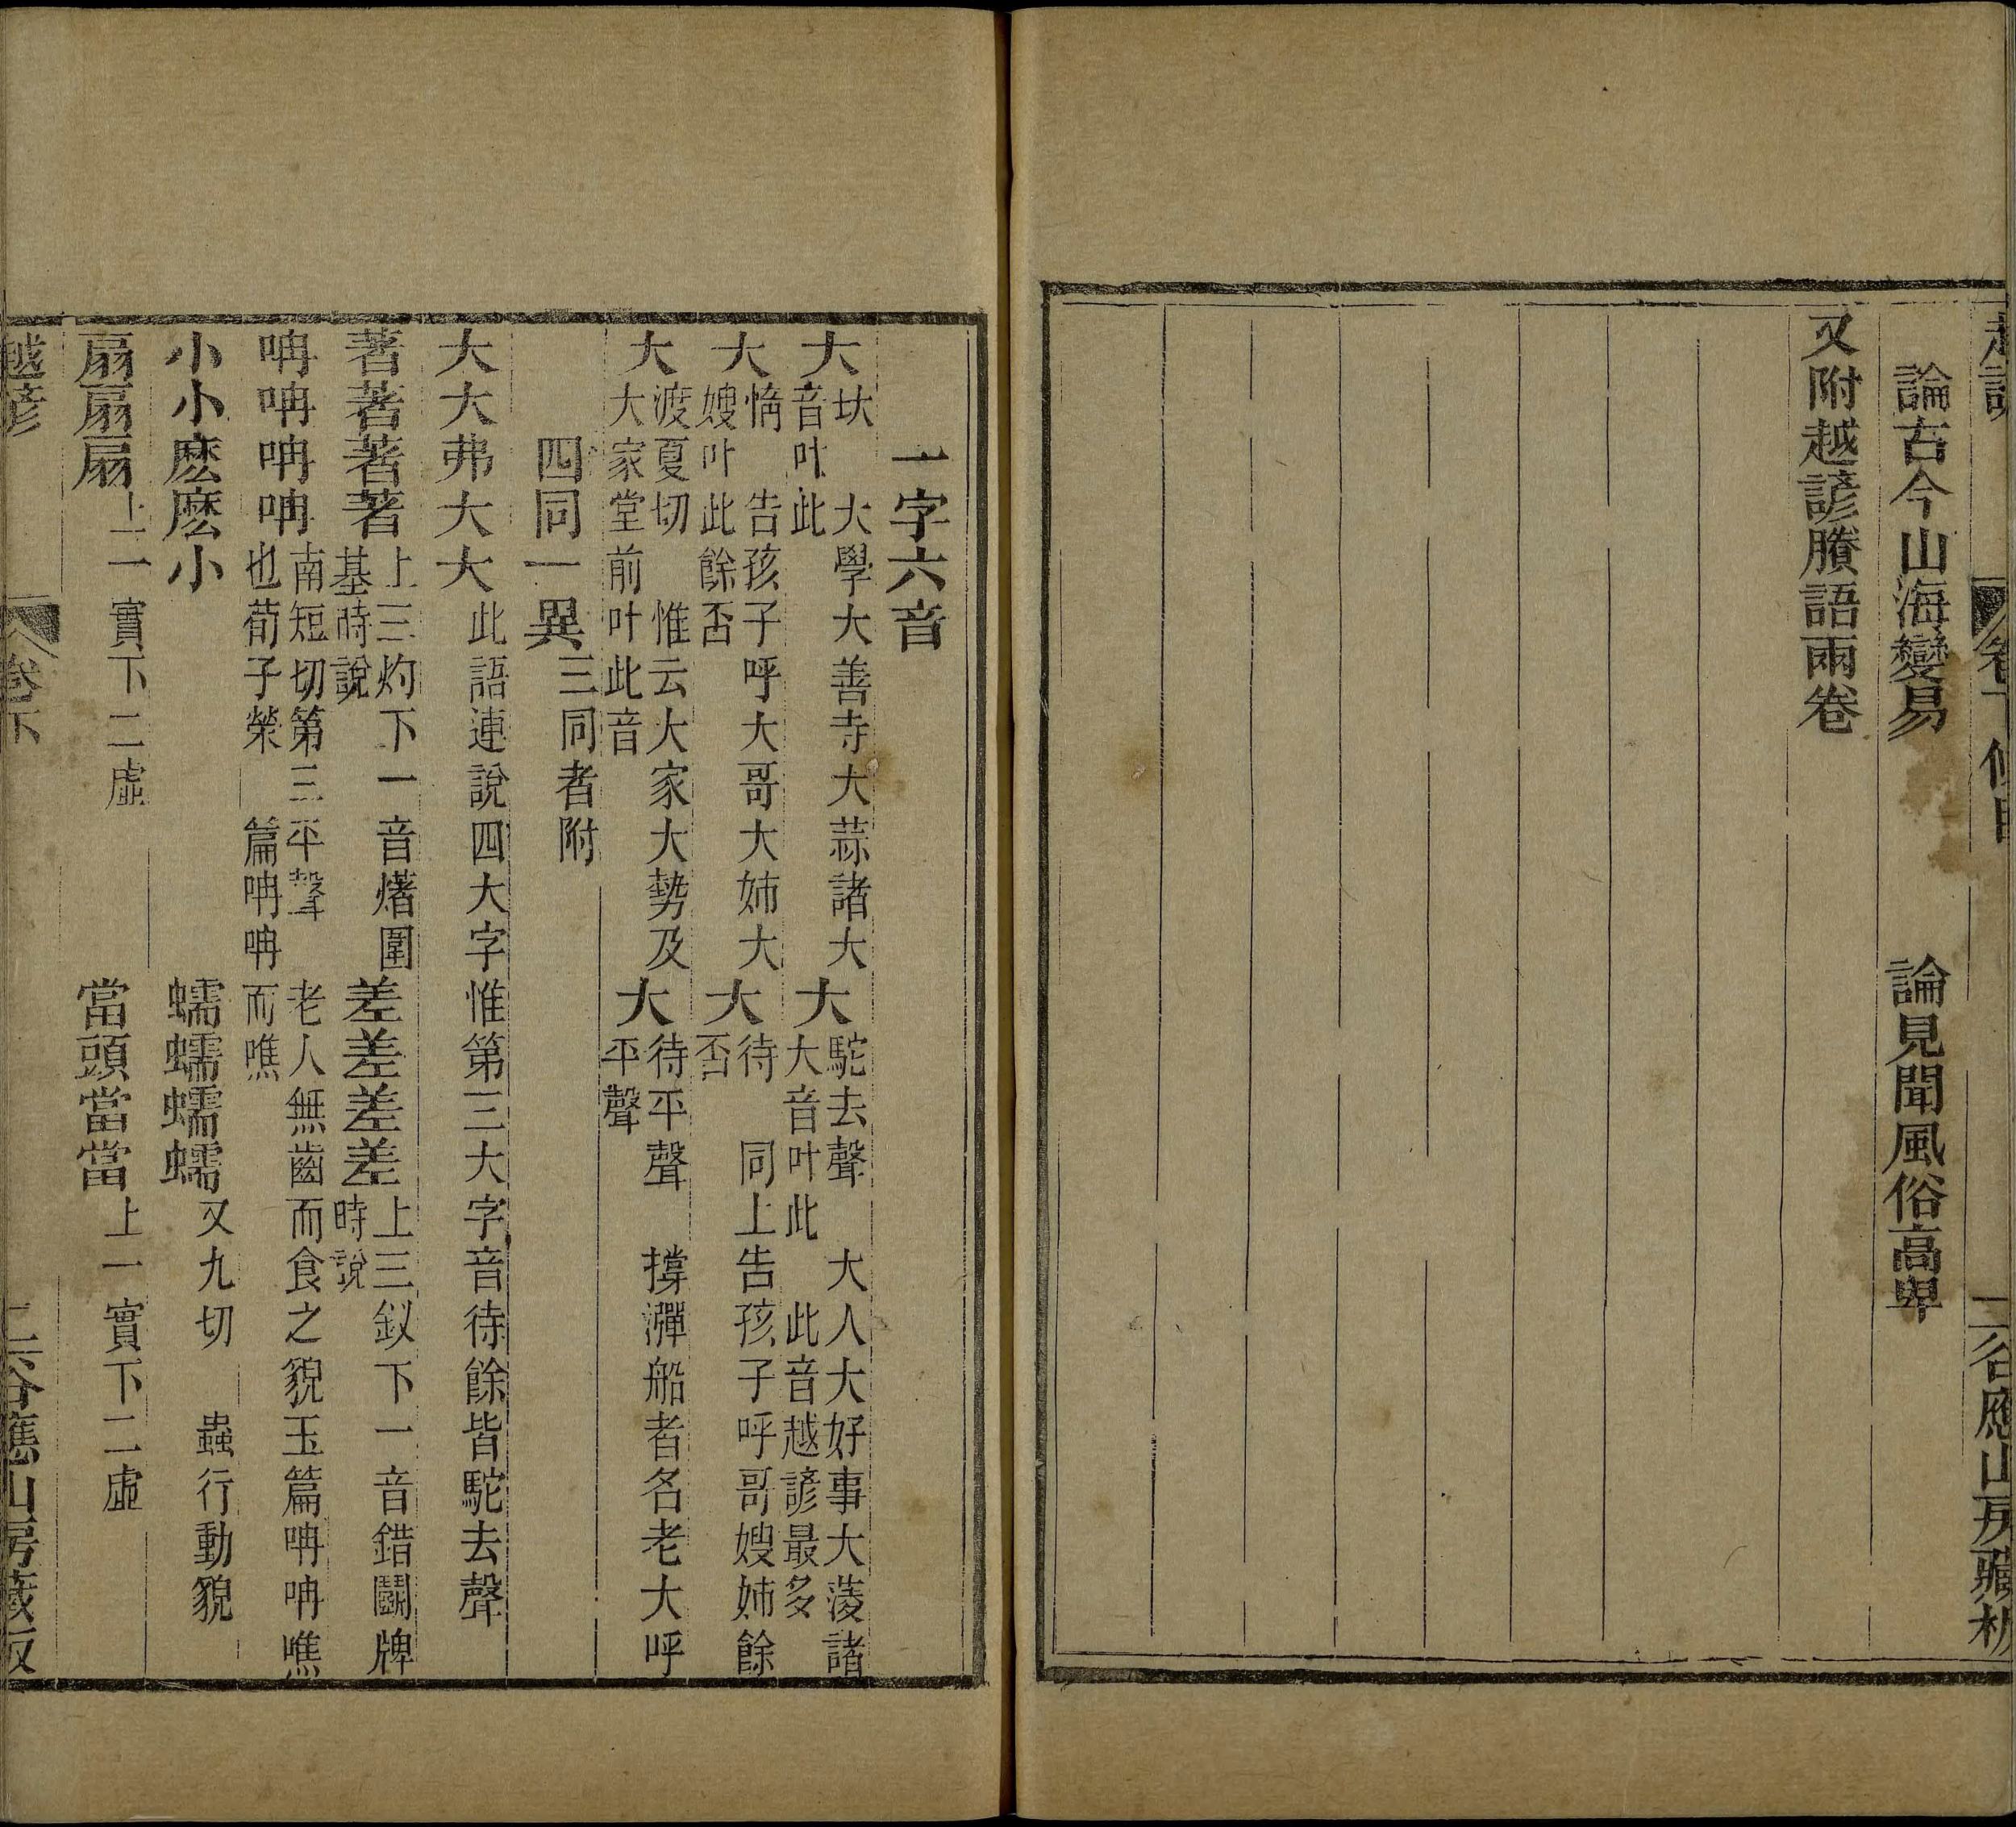 論古今山海變易　論見聞風俗高卑
又附越諺賸語兩卷
一字六音
大坎音叶此　大學大善寺大蒜諸大　大駝去聲大音叶此　大人大好事大菱諸此音越諺最多
大惰嫂叶此餘否　告孩子呼大哥大姉大　大待否　同上告孩子呼哥嫂姉餘
大渡夏切　惟云大家大勢及大家堂前叶此音　大待平聲平聲　撐潬船者名老大呼
四同一異三同者附
大大弗大大此語連說四大字惟第三大字音待餘皆駝去聲
著著著著上三灼下一音㷮圍基時說　差差差差上三釵下一音錯鬬牌時說
呥呥呥呥南短切第三平聲也荀子榮　老人無齒而食之貌玉篇呥呥噍篇呥呥而噍
小小麽麽小　蠕蠕蠕蠕又九切　蟲行動貌
扇扇扇上一實下二虛　當頭當當上一實下二虛
越諺　卷下　二　谷應山房藏板